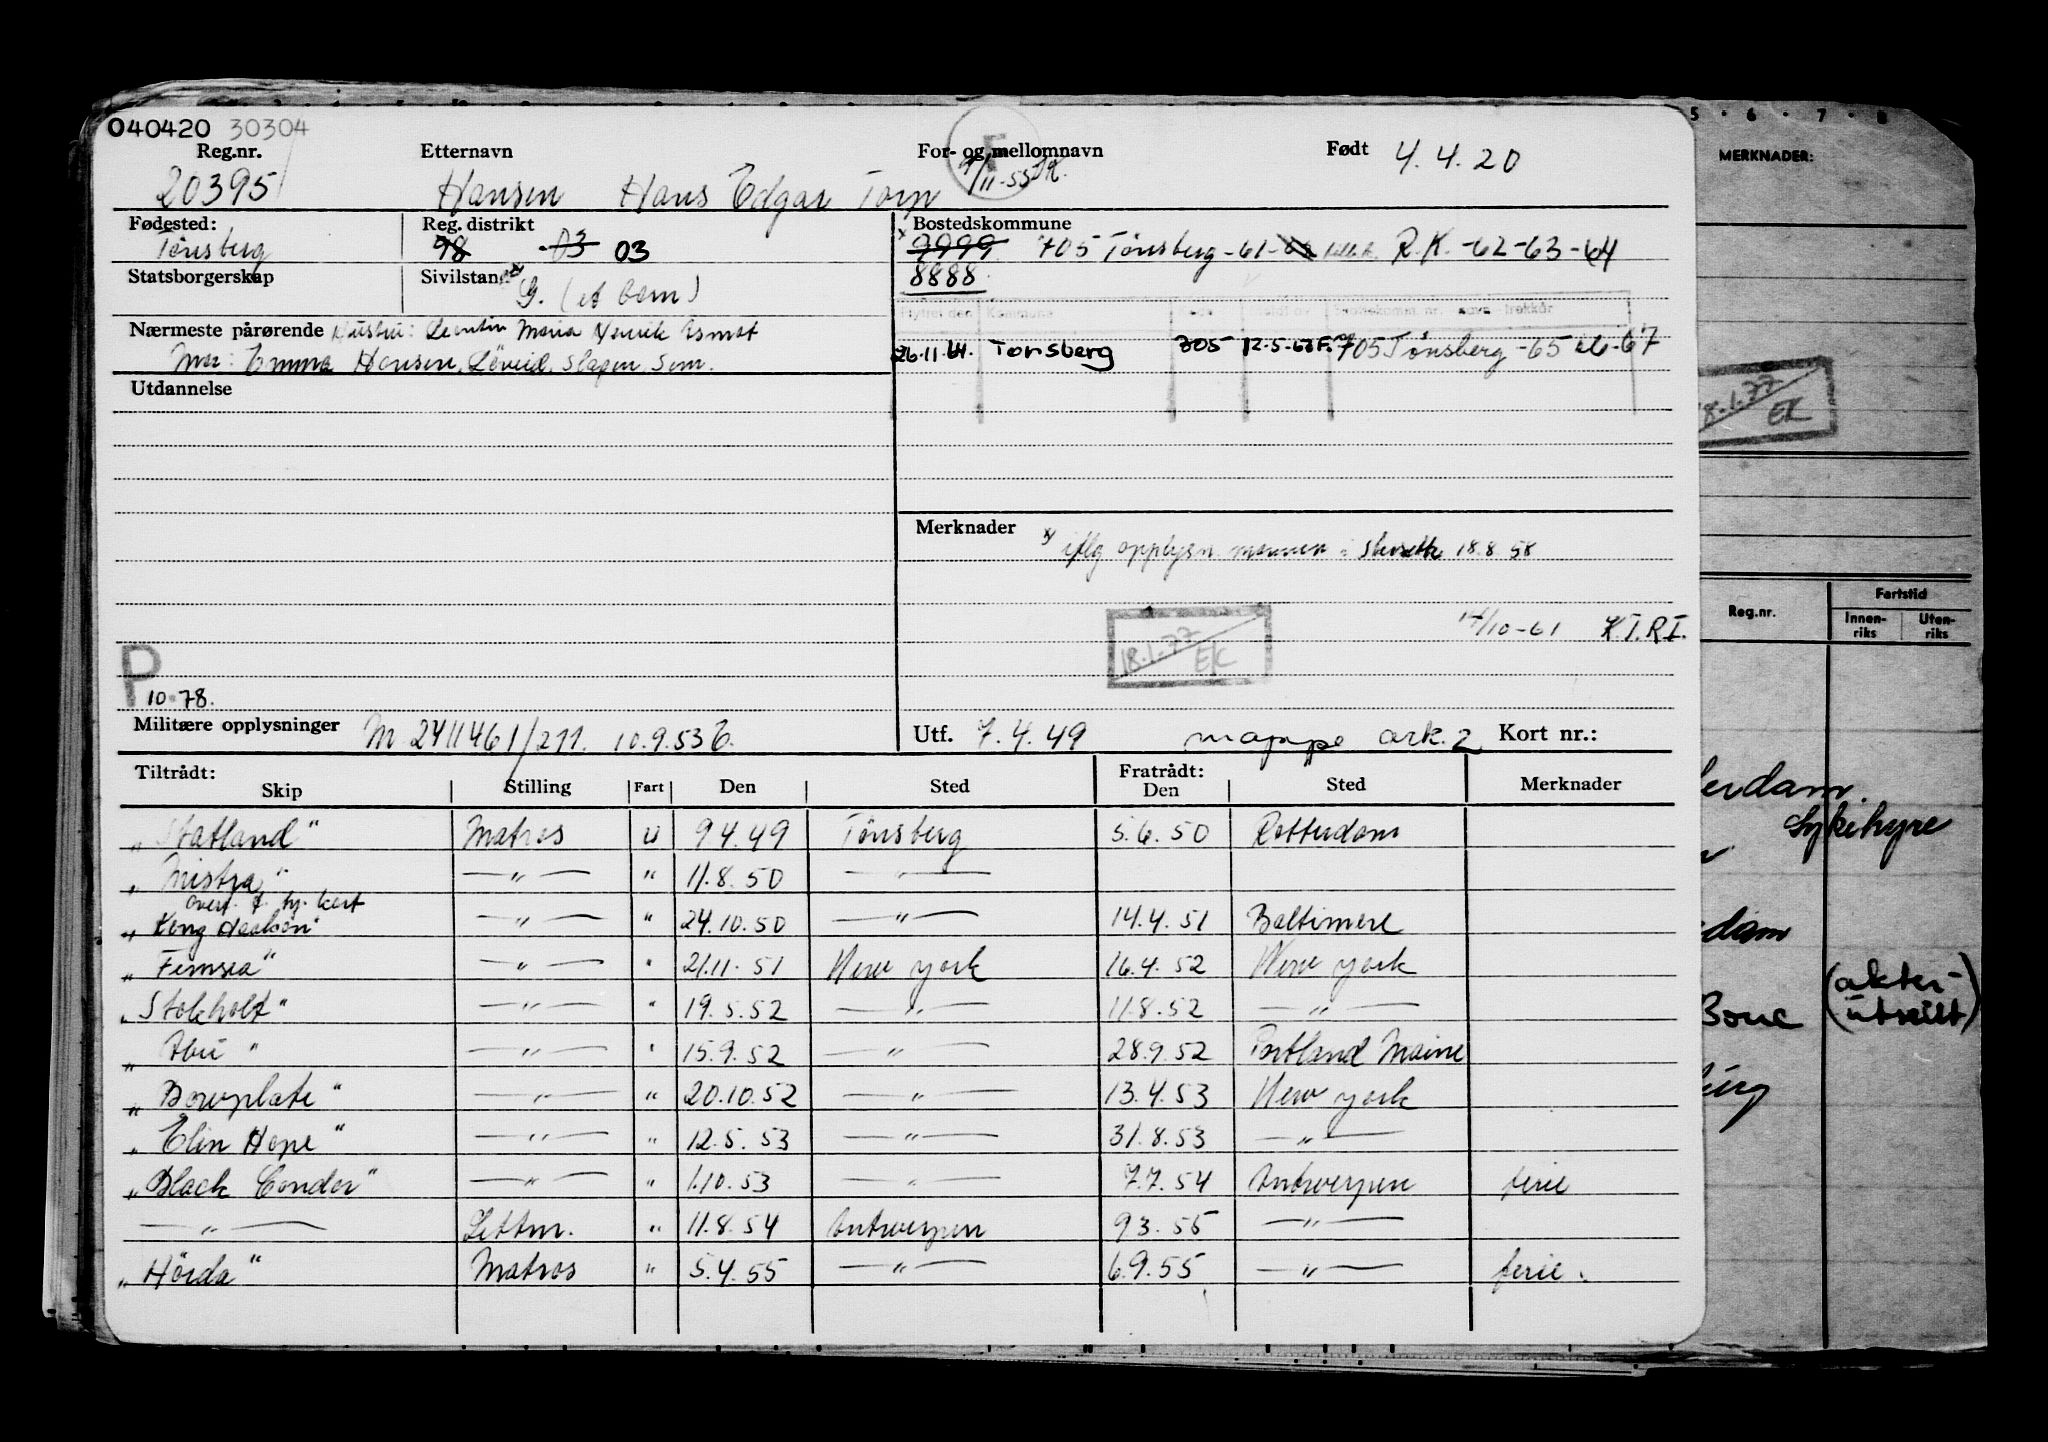 040420 30304
Reg.nr. Etternavn For- og mellomnavn Født 4.4.20
20395 Hansen Hans Edgar Torp 9/11-55
Fødested: Reg. distrikt Bostedskommune
Tønsberg 98 03 03 9999 705 Tønsberg -61- R.K. -62-63-64
Statsborgerskap Sivilstand 8888
G. (et barn)
Nærmeste pårørende Hustru: Maria
Mor: Emma Hansen, Slagen, Sem.
26.11.61. Tønsberg 705 12.5.67 F. 705 Tønsberg -65 66-67
Utdannelse
Merknader
x) iflg opplysn. mannen 18.8.58
14/10-61
18.1.77 EK
P
10.78.
Militære opplysninger M 2411461/211. 10.9.53 Utf. 7.4.49 mappe ark. 2 Kort nr.:
Tiltrådt: Fratrådt:
Skip Stilling Fart Den Sted Den Sted Merknader
"Statland" Matros U 9.4.49 Tønsberg 5.6.50 Rotterdam
"Mistra" —"— " 11.8.50 —"—
overf. f. sj. kort
"Kong Haakon" —"— " 24.10.50 —"— 14.4.51 Baltimore
"Fernsea" —"— " 21.11.51 New York 16.4.52 New York
"Stokholt" —"— " 19.5.52 —"— 11.8.52 —"—
—"— " 15.9.52 —"— 28.9.52 Portland Maine
"Bowplate" —"— " 20.10.52 —"— 13.4.53 New York
"Elin Hope" —"— " 12.5.53 —"— 31.8.53 —"—
"Black Condor" —"— " 1.10.53 —"— 7.7.54 Antwerpen ferie
—"— Lettm. " 11.8.54 Antwerpen 9.3.55 —"—
"Hörda" Matros " 5.4.55 —"— 6.9.55 —"— ferie.
5 · 6 · 7 · 8
MERKNADER:
8.1.77 EK
Reg.nr. Fartstid
Innen-riks Uten-riks
erdam
Sykehyre
dam
Bouc (akter-
utseilt)